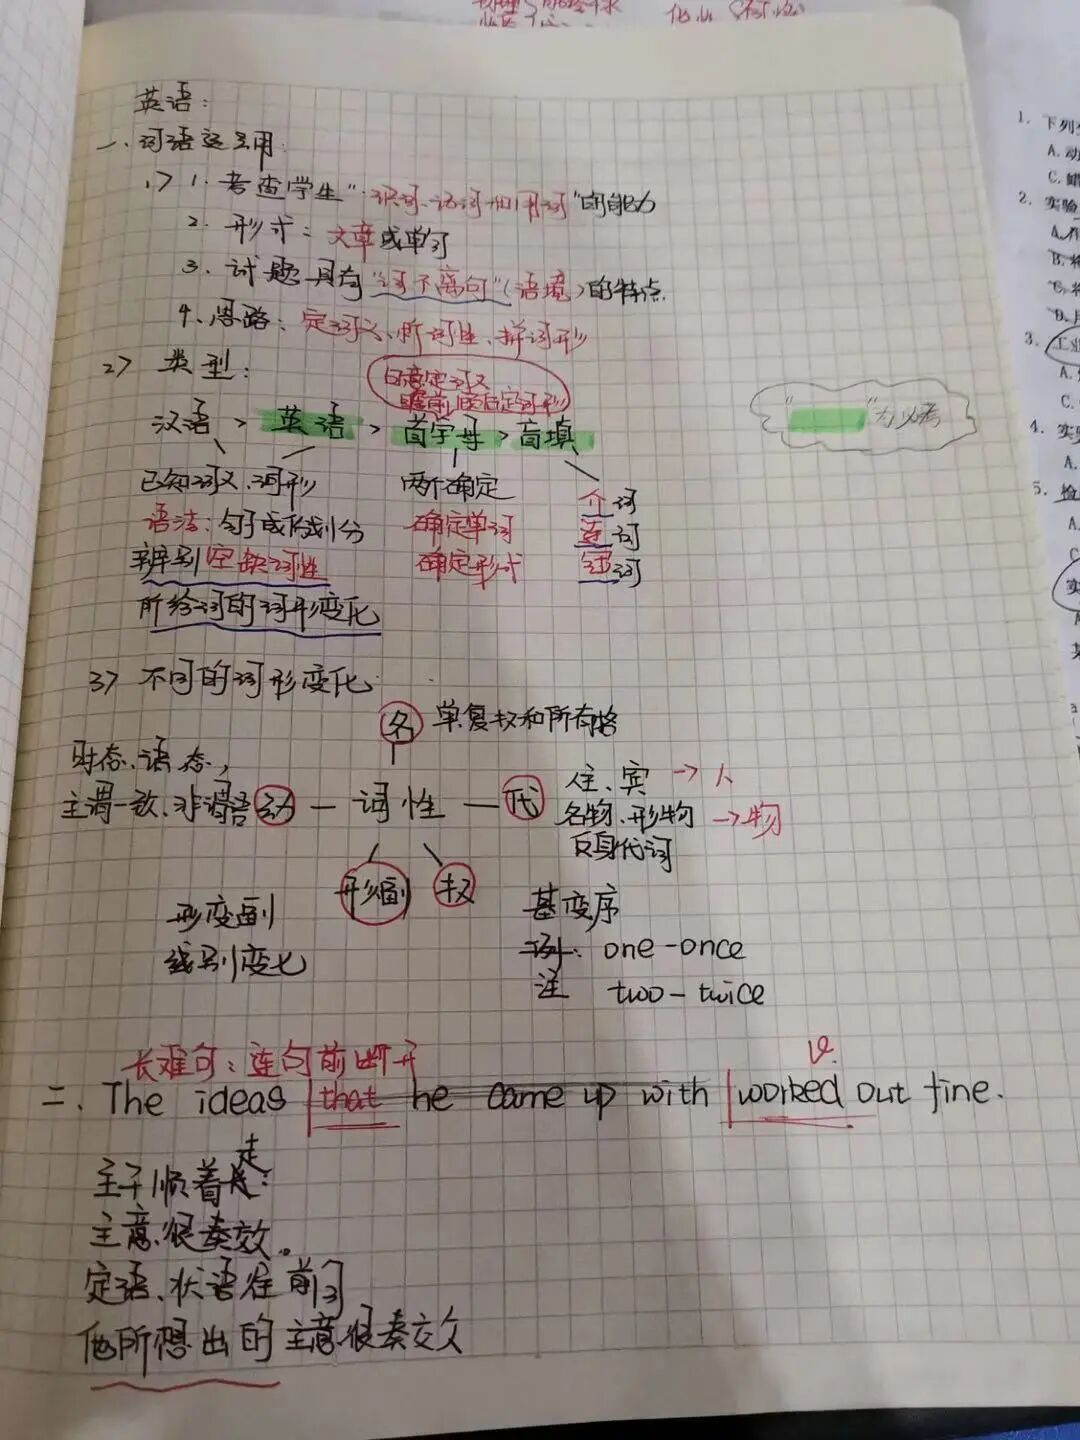 英语:
一、词语运用:
1> 1. 考查学生"识词、记词和用词"的能力
2. 形式: 文章或单句
3. 试题具有"词不离句"(语境)的特点.
4. 思路: 定词义、断词性、拼词形
2> 类型:
由意定词义
瞻前顾后定词形
汉语 > 英语 > 首字母 > 盲填
" "为必考
已知词义、词形
两个确定
介词
语法: 句子成份划分
确定单词
连词
辨别空缺词性
确定形式
冠词
所给词的词形变化
3> 不同的词形变化
名 单复数和所有格
时态、语态,
主谓一致、非谓语 动 — 词性 — 代
人主、宾 → 人
名物、形物 → 物
反身代词
形副 数
形变副
级别变化
基变序
例: one-once
注 two-twice
长难句: 连句前断开
v.
二、The ideas that he came up with worked out fine.
主干顺着走:
主意很奏效。
定语、状语往前
他所想出的主意很奏效
1. 下列
A. 动
C. 蜡
2. 实验
3. 工业
A.
C.
4. 实
A.
5. 检
A.
C